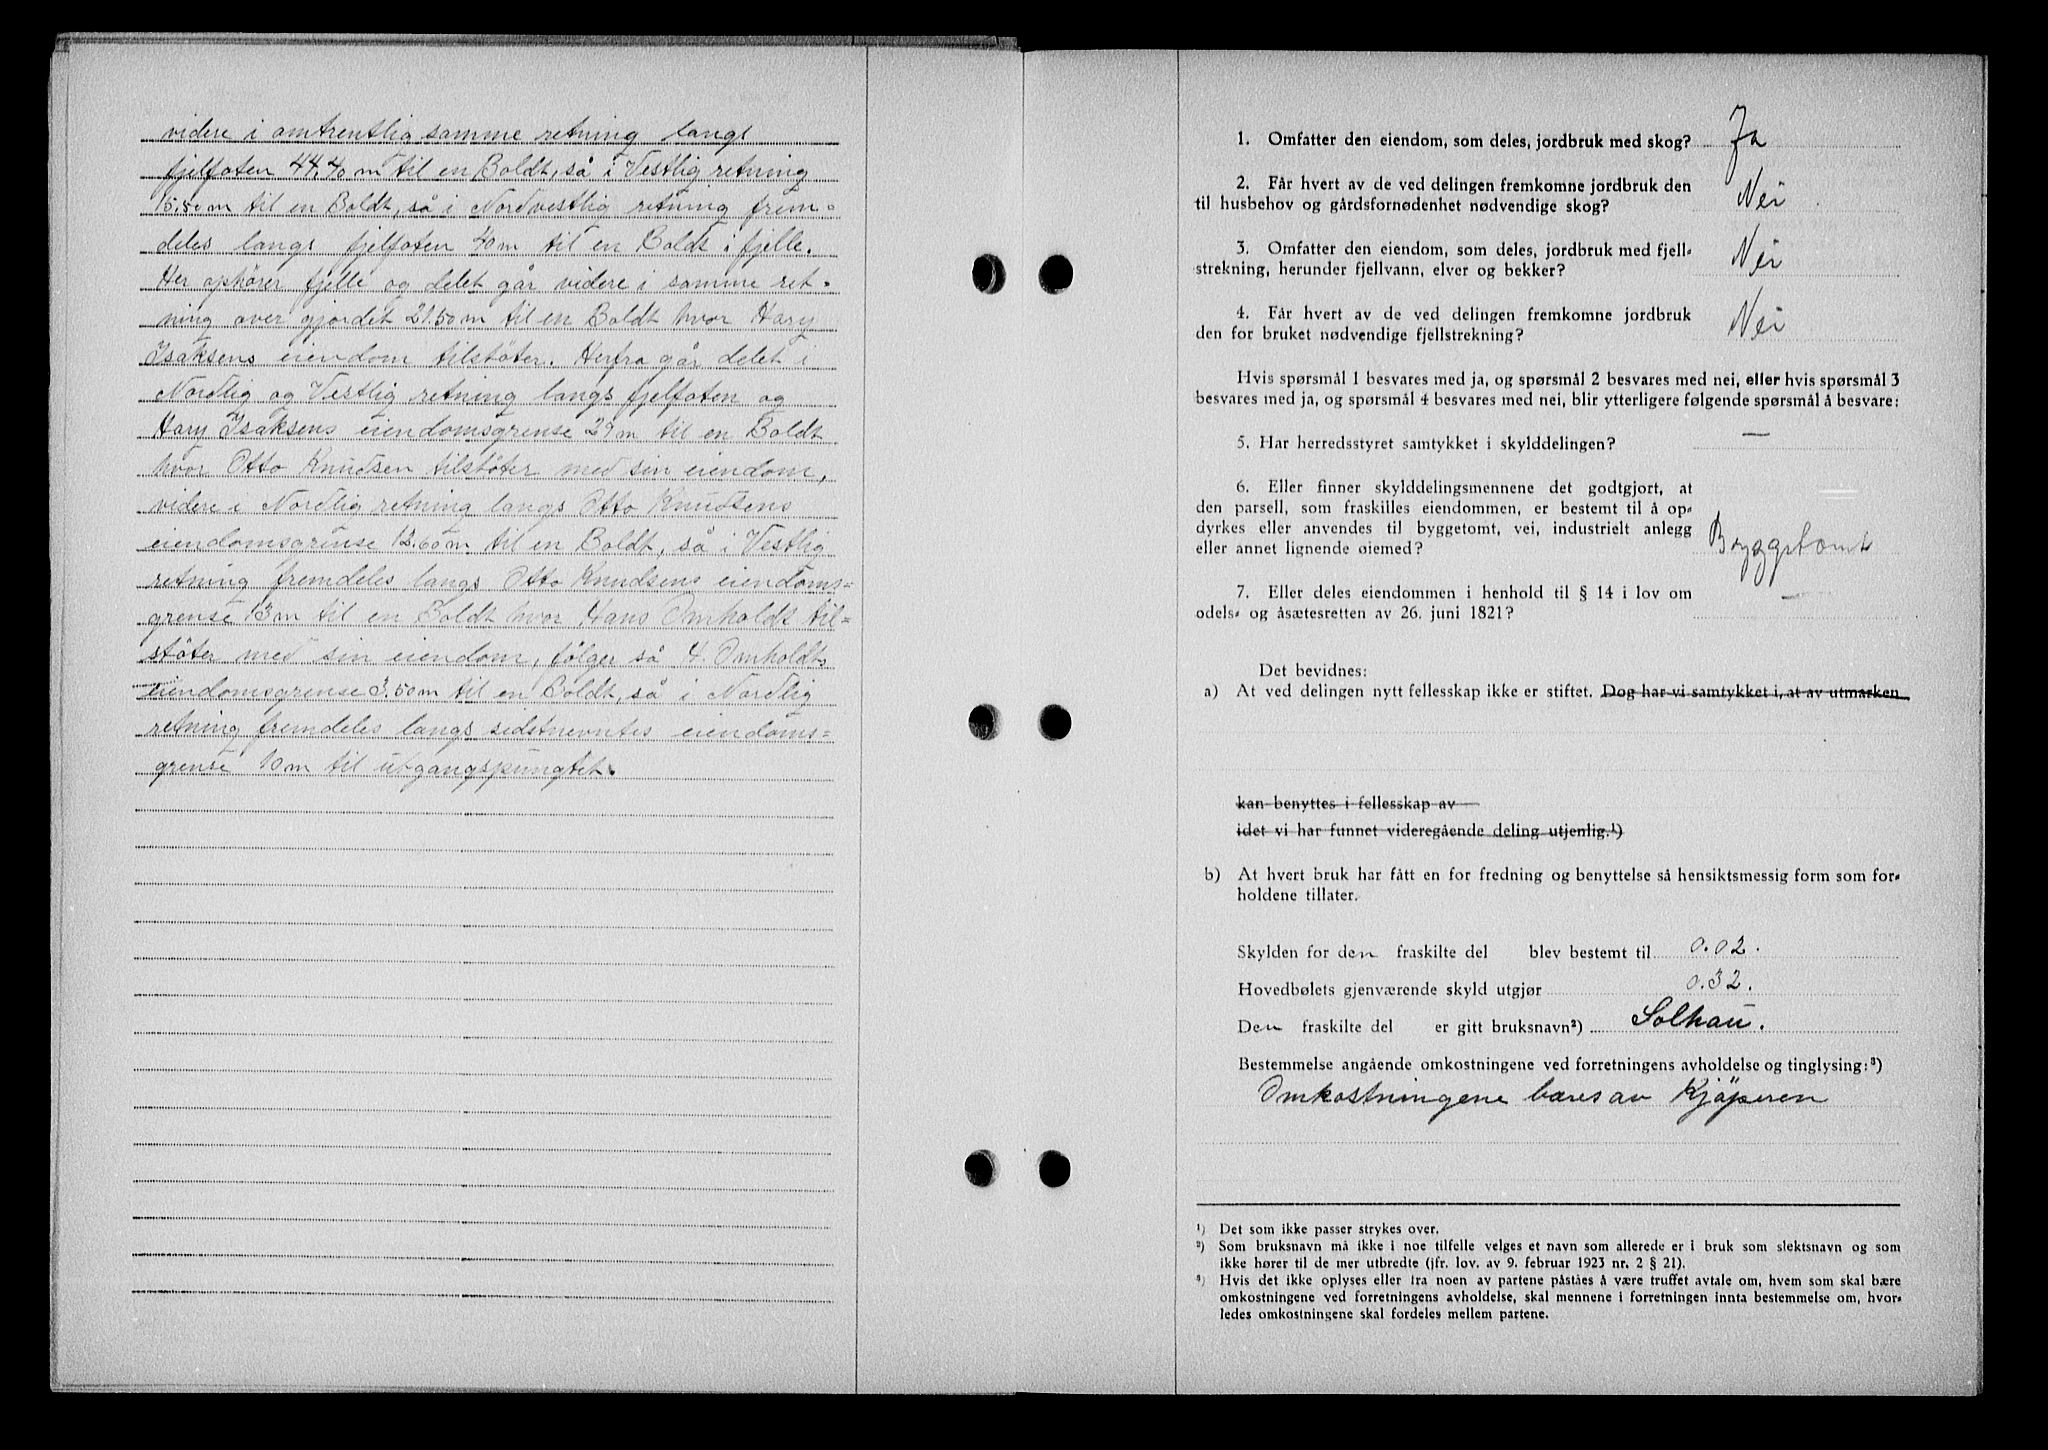 videre i omtrentlig samme retning langs
fjelfoten 44.40 m til en Boldt, så i Vestlig retning
15.50 m til en Boldt, så i Nordvestlig retning frem-
deles langs fjelfoten 40 m til en Boldt i fjelle.
Her ophører fjelle og delet går videre i samme ret-
ning over gjordet 21.50 m til en Boldt hvor Hary
Isaksens eiendom tilstöter. Herfra går delet i
Nordlig og Vestlig retning langs fjelfoten og
Hary Isaksens eiendomsgrense 29 m til en Boldt
hvor Otto Knudsen tilstöter med sin eiendom,
videre i Nordlig retning langs Otto Knudsens
eiendomsgrense 12.60 m til en Boldt, så i Vestlig
retning fremdeles langs Otto Knudsens eiendoms=
grense 13 m til en Boldt hvor Hans Omholdt til=
stöter med sin eiendom, følger så H. Omholdts
eiendomsgrense 3.50 m til en Boldt, så i Nordlig
retning fremdeles langs sidstnevntes eiendoms=
grense 10 m til utgangspungtet.
1. Omfatter den eiendom, som deles, jordbruk med skog? Ja
2. Får hvert av de ved delingen fremkomne jordbruk den
til husbehov og gårdsfornødenhet nødvendige skog? Nei
3. Omfatter den eiendom, som deles, jordbruk med fjell-
strekning, herunder fjellvann, elver og bekker? Nei
4. Får hvert av de ved delingen fremkomne jordbruk
den for bruket nødvendige fjellstrekning? Nei
Hvis spørsmål 1 besvares med ja, og spørsmål 2 besvares med nei, eller hvis spørsmål 3
besvares med ja, og spørsmål 4 besvares med nei, blir ytterligere følgende spørsmål å besvare:
5. Har herredsstyret samtykket i skylddelingen? —
6. Eller finner skylddelingsmennene det godtgjort, at
den parsell, som fraskilles eiendommen, er bestemt til å op-
dyrkes eller anvendes til byggetomt, vei, industrielt anlegg
eller annet lignende øiemed? Byggetomt
7. Eller deles eiendommen i henhold til § 14 i lov om
odels- og åsætesretten av 26. juni 1821? —
Det bevidnes:
a) At ved delingen nytt fellesskap ikke er stiftet. Dog har vi samtykket i, at av utmarken
kan benyttes i fellesskap av
idet vi har funnet videregående deling utjenlig.¹)
b) At hvert bruk har fått en for fredning og benyttelse så hensiktsmessig form som for-
holdene tillater.
Skylden for den fraskilte del blev bestemt til 0.02.
Hovedbølets gjenværende skyld utgjør 0.32.
Den fraskilte del er gitt bruksnavn²) Solhau.
Bestemmelse angående omkostningene ved forretningens avholdelse og tinglysing:³)
Omkostningene bæres av Kjöperen
¹) Det som ikke passer strykes over.
²) Som bruksnavn må ikke i noe tilfelle velges et navn som allerede er i bruk som slektsnavn og som
ikke hører til de mer utbredte (jfr. lov. av 9. februar 1923 nr. 2 § 21).
³) Hvis det ikke oplyses eller fra noen av partene påståes å være truffet avtale om, hvem som skal bære
omkostningene ved forretningens avholdelse, skal mennene i forretningen innta bestemmelse om, hvor-
ledes omkostningene skal fordeles mellem partene.